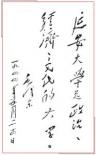 延安大学是政治
经济文化的大学
毛泽东
一九四四年五月二十一日